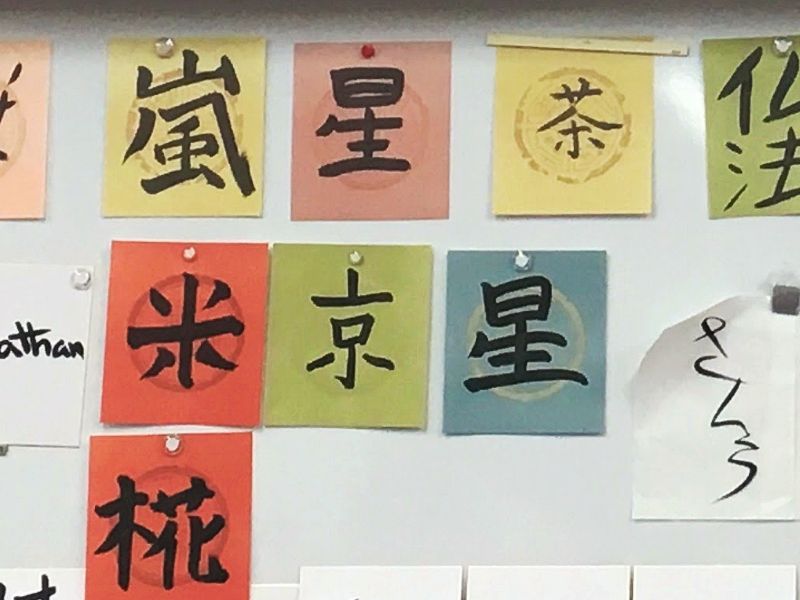 嵐
星
茶
仏法
athan
米
京
星
椛